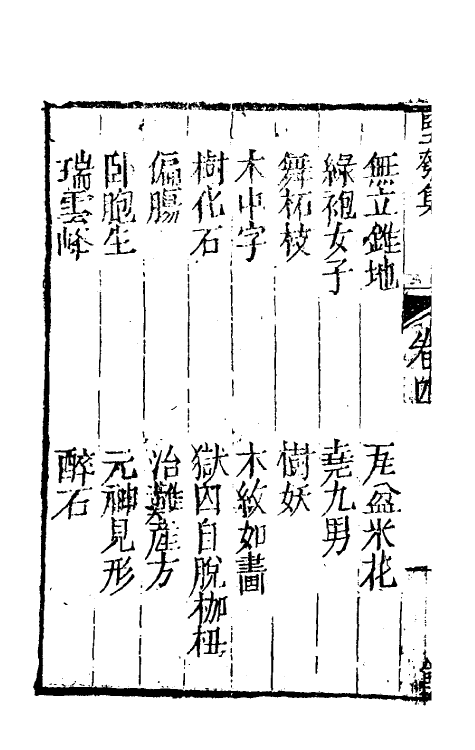 無立錐地　瓦盆米花
綠袍女子　堯九男
舞柘枝　樹妖
木中字　木紋如畵
樹化石　獄囚自脫枷杻
偏腸　治難產方
卧胞生　元神見形
瑞雲峰　醉石
集
卷四